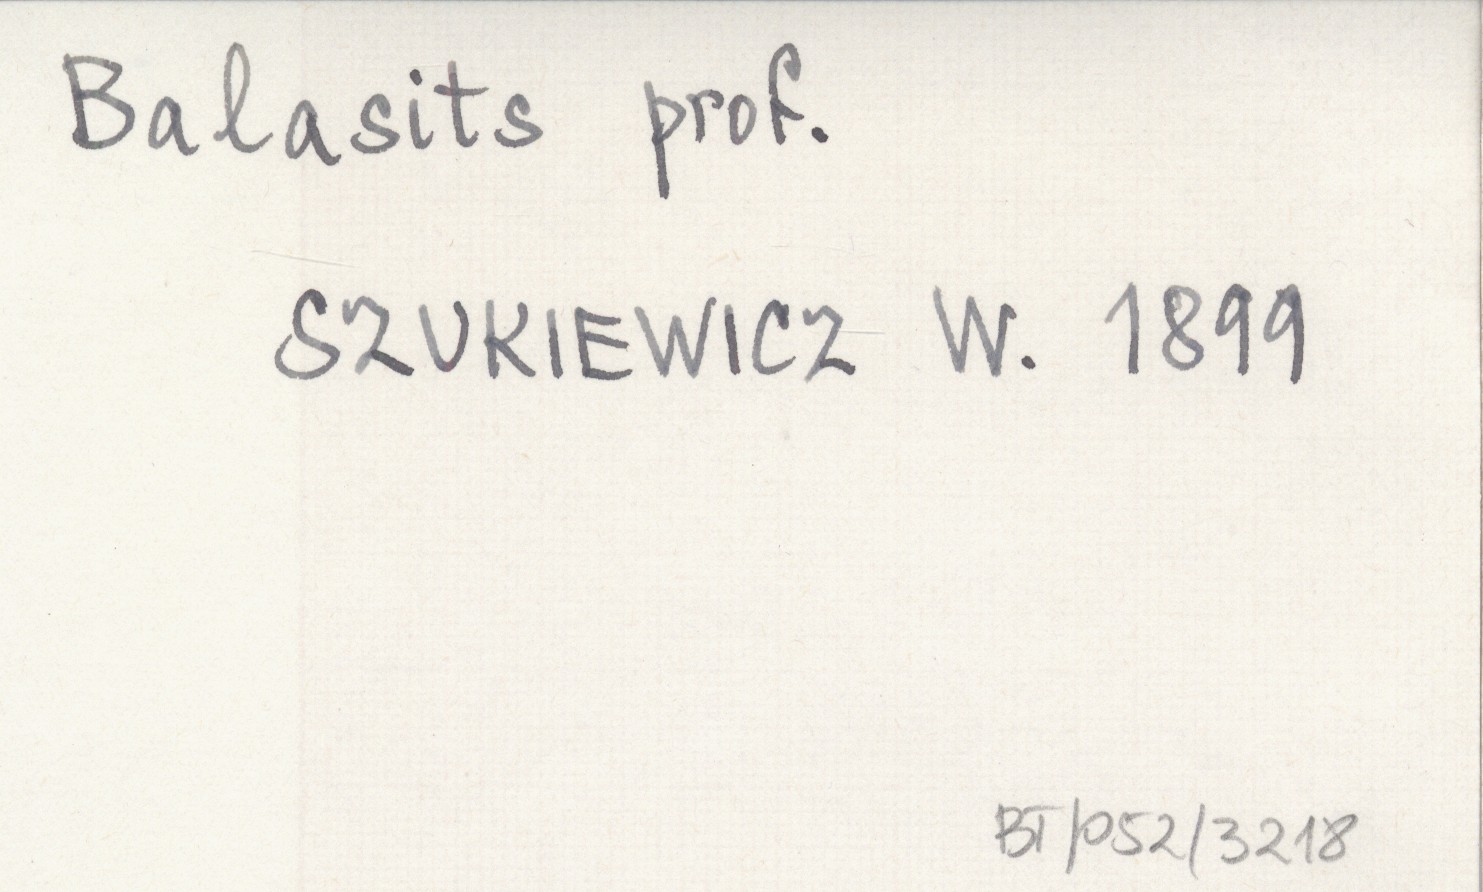 Balasits prof.
SZUKIEWICZ W. 1899
BT/052/3218